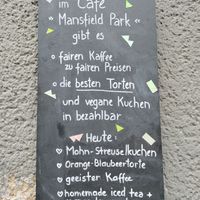 im Café
"Mansfield Park"
gibt es
◦ fairen Kaffee
zu fairen Preisen
◦ die besten Torten
◦ und vegane Kuchen
in bezahlbar
Heute:
♡ Mohn-Streuselkuchen
♡ Orange-Blaubeertorte
♡ geeister Kaffee
♡ homemade iced tea +